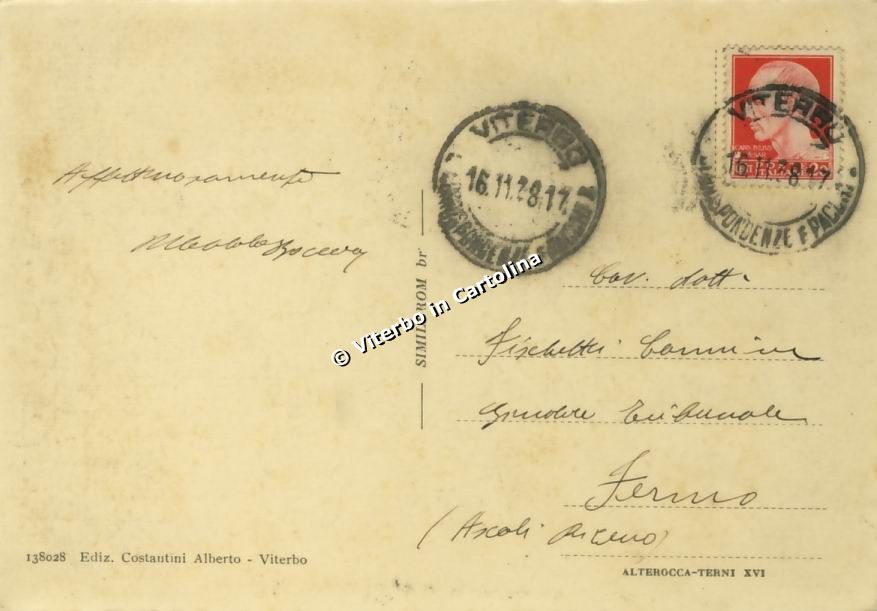 Affettuosamente
VITERBO
16.11.38.17
CORRISPONDENZE E PACCHI
VITERBO
16.11.38.17
CORRISPONDENZE E PACCHI
SIMILCROM br
© Viterbo in Cartolina
Cav. dott.
Fischetti Carmine
Giudice Tribunale
Fermo
(Ascoli Piceno)
138028 Ediz. Costantini Alberto - Viterbo
ALTEROCCA-TERNI XVI